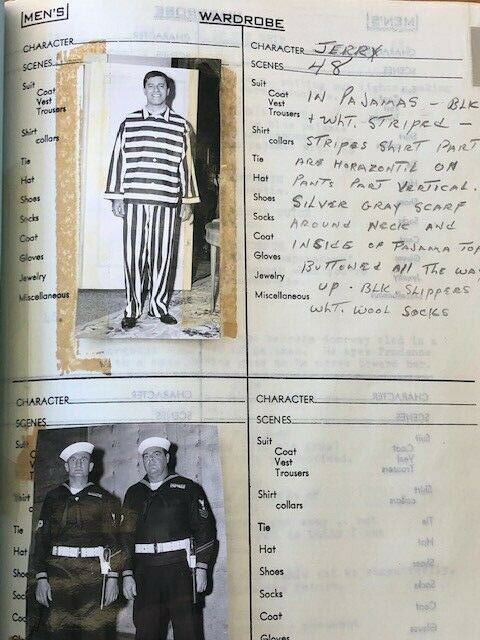 MEN'S
WARDROBE
CHARACTER
SCENES
Suit
Coat
Vest
Trousers
Shirt
collars
Tie
Hat
Shoes
Socks
Coat
Gloves
Jewelry
Miscellaneous
CHARACTER JERRY
SCENES 48
Suit
Coat IN PAJAMAS - BLK
Vest
Trousers + WhT. STRIPED -
Shirt
collars STRIPES SHIRT PART
Tie ARE HORAZONTIL ON
Hat PANTS PART VERTICAL.
Shoes SILVER GRAY SCARF
Socks AROUND NECK AND
Coat INSIDE OF PAJAMA TOP
Gloves BUTTONED ALL THE WAY
Jewelry UP - BLK SLIPPERS
Miscellaneous WhT. WOOL SOCKS
CHARACTER
SCENES
Suit
Shirt
Tie
Hat
Shoes
Socks
Coat
Gloves
CHARACTER
SCENES
Suit
Coat
Vest
Trousers
Shirt
collars
Tie
Hat
Shoes
Socks
Coat
Gloves